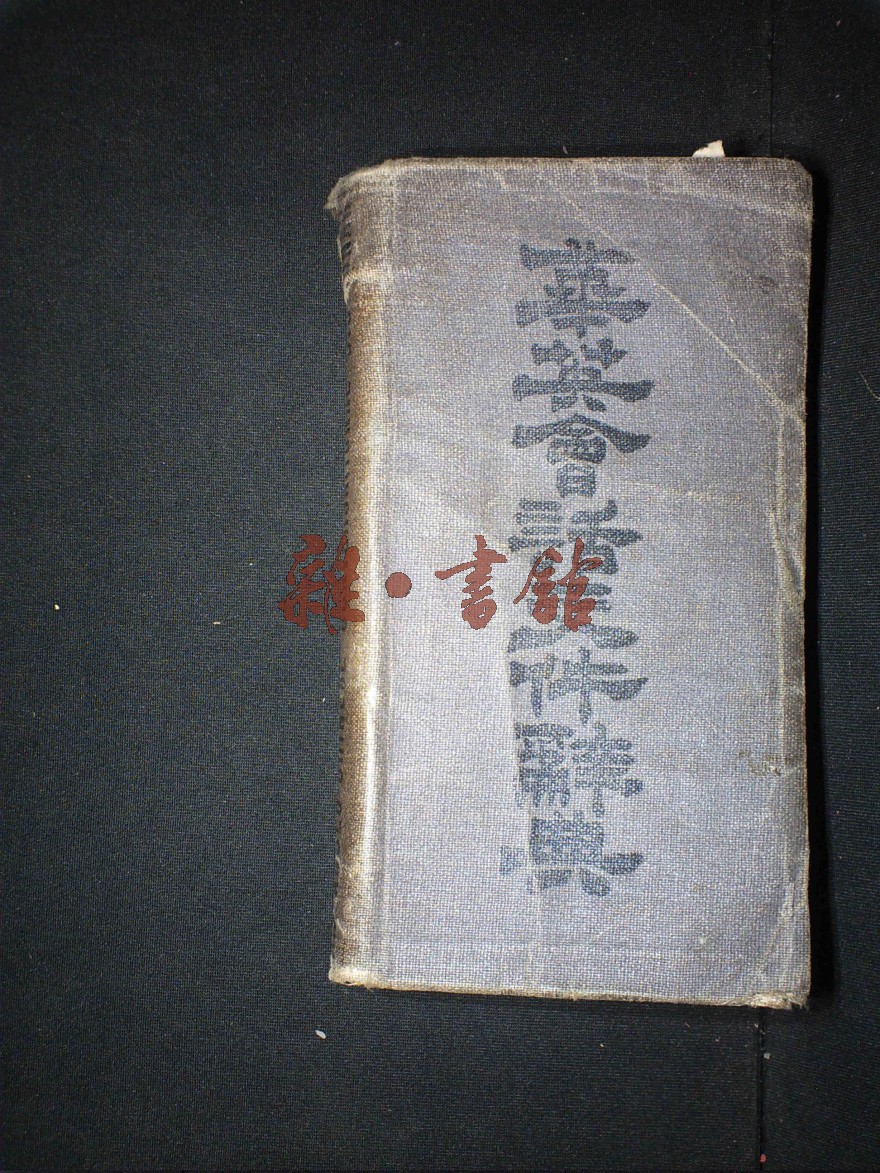 華英會話文件辭典
雜·書館